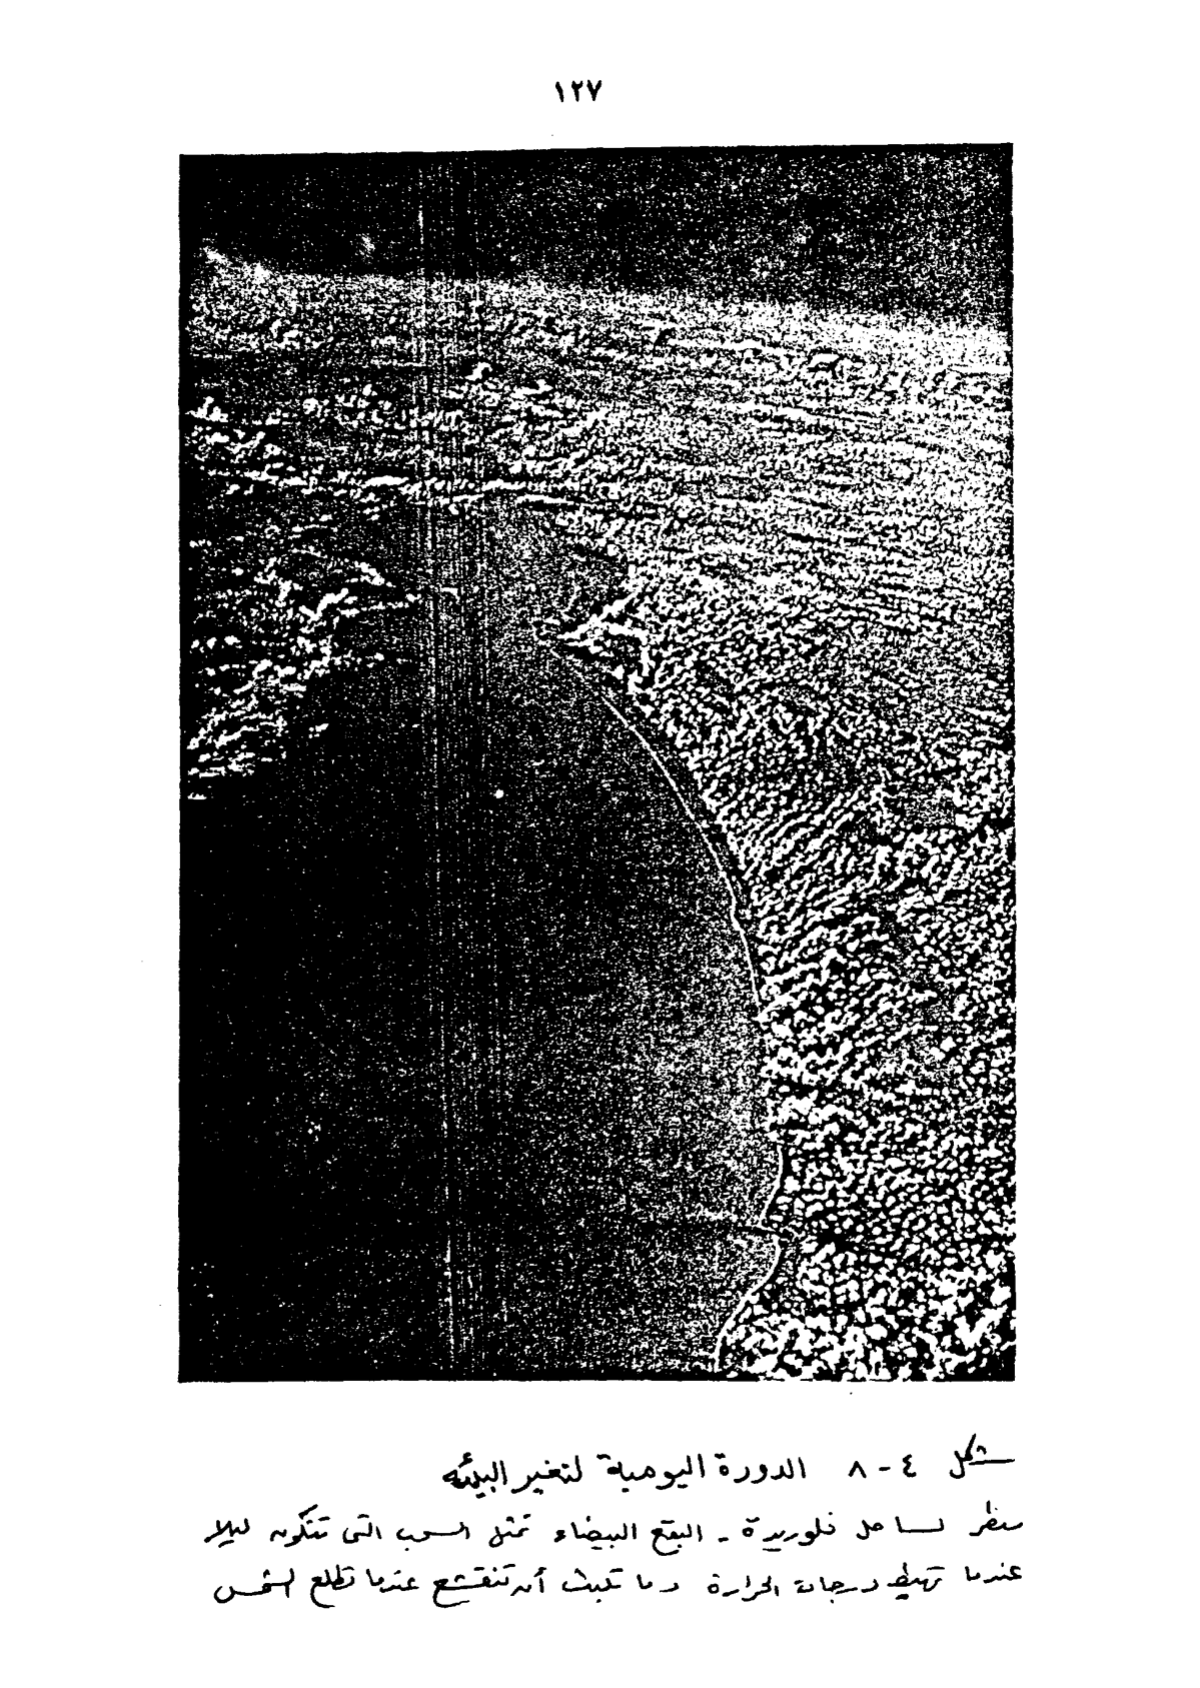 ١٢٧
شكل ٤ - ٨ الدورة اليومية لتغير البيئه
منظر لساحل فلوريدة - البقع البيضاء تمثل السحب التى تتكون ليلا
عندما تهبط درجات الحرارة وما تلبث أن تنقشع عندما تطلع الشمس